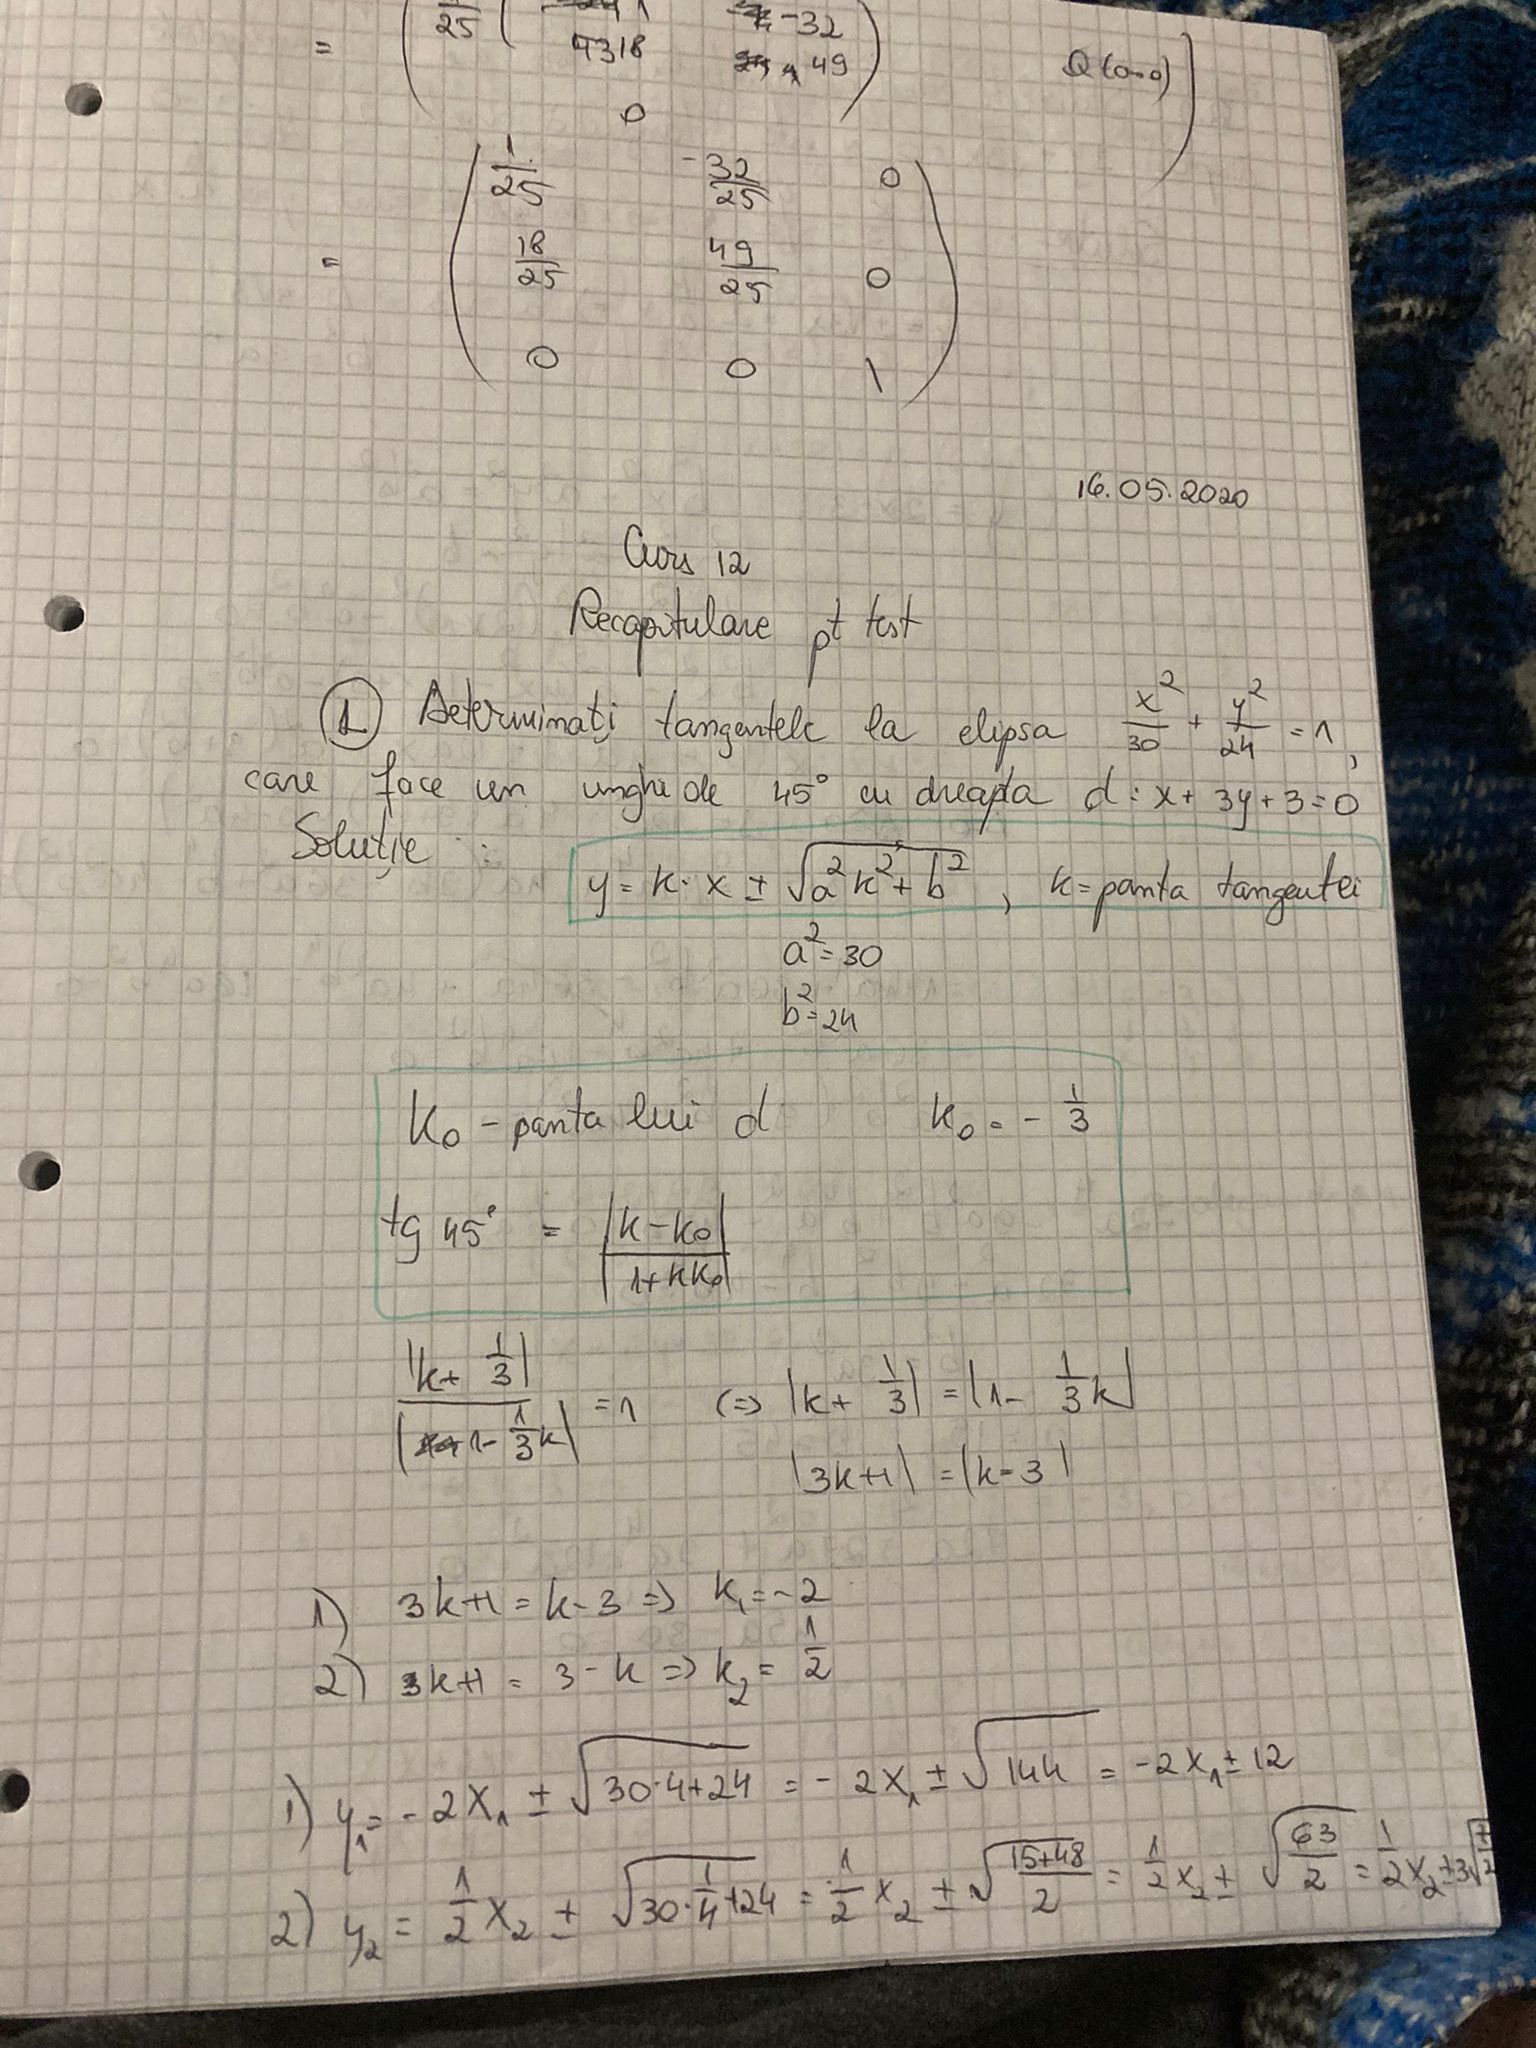 = 1/25 ( -32
18 49 Q(0.0)
0
= 1/25 -32/25 0
18/25 49/25 0
0 0 1
16.05.2020
Curs 12
Recapitulare pt test
① Determinați tangentele la elipsa x²/30 + y²/24 = 1,
care face un unghi de 45° cu dreapta d: x + 3y + 3 = 0
Soluție :
y = k · x ± √(a²k² + b²) , k = panta tangentei
a² = 30
b² = 24
k₀ - panta lui d k₀ = - 1/3
tg 45° = |k - k₀| / |1 + kk₀|
|k + 1/3| / |1 - 1/3 k| = 1 (=) |k + 1/3| = |1 - 1/3 k|
|3k+1| = |k - 3|
1) 3k+1 = k - 3 => k₁ = -2
2) 3k+1 = 3 - k => k₂ = 1/2
1) y₁ = - 2x₁ ± √(30·4+24) = - 2x₁ ± √144 = -2x₁ ± 12
2) y₂ = 1/2 x₂ ± √(30·1/4+24) = 1/2 x₂ ± √((15+48)/2) = 1/2 x₂ ± √(63/2) = 1/2 x₂ ± 3√(7/2)